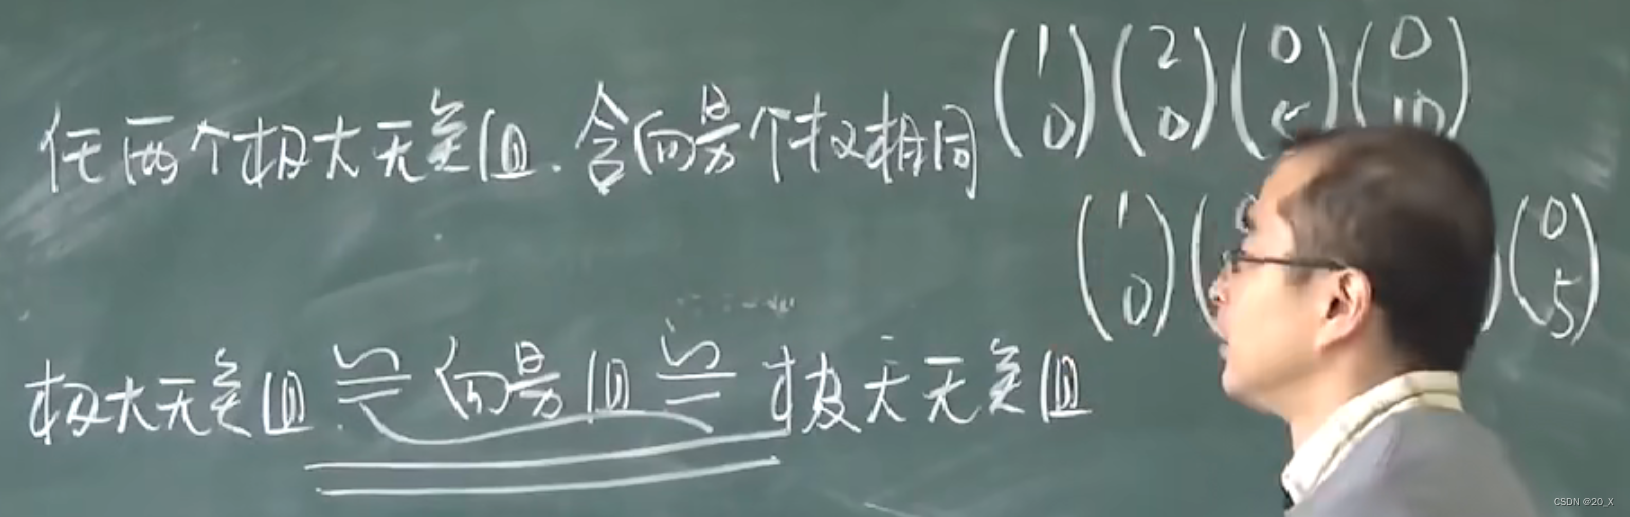 任两个极大无关组.含向量个数相同 (1 0) (2 0) (0 5) (0 10)
(1 0) ( ) (0 5)
极大无关组 ≌ 向量组 ≌ 极大无关组
CSDN @20_X